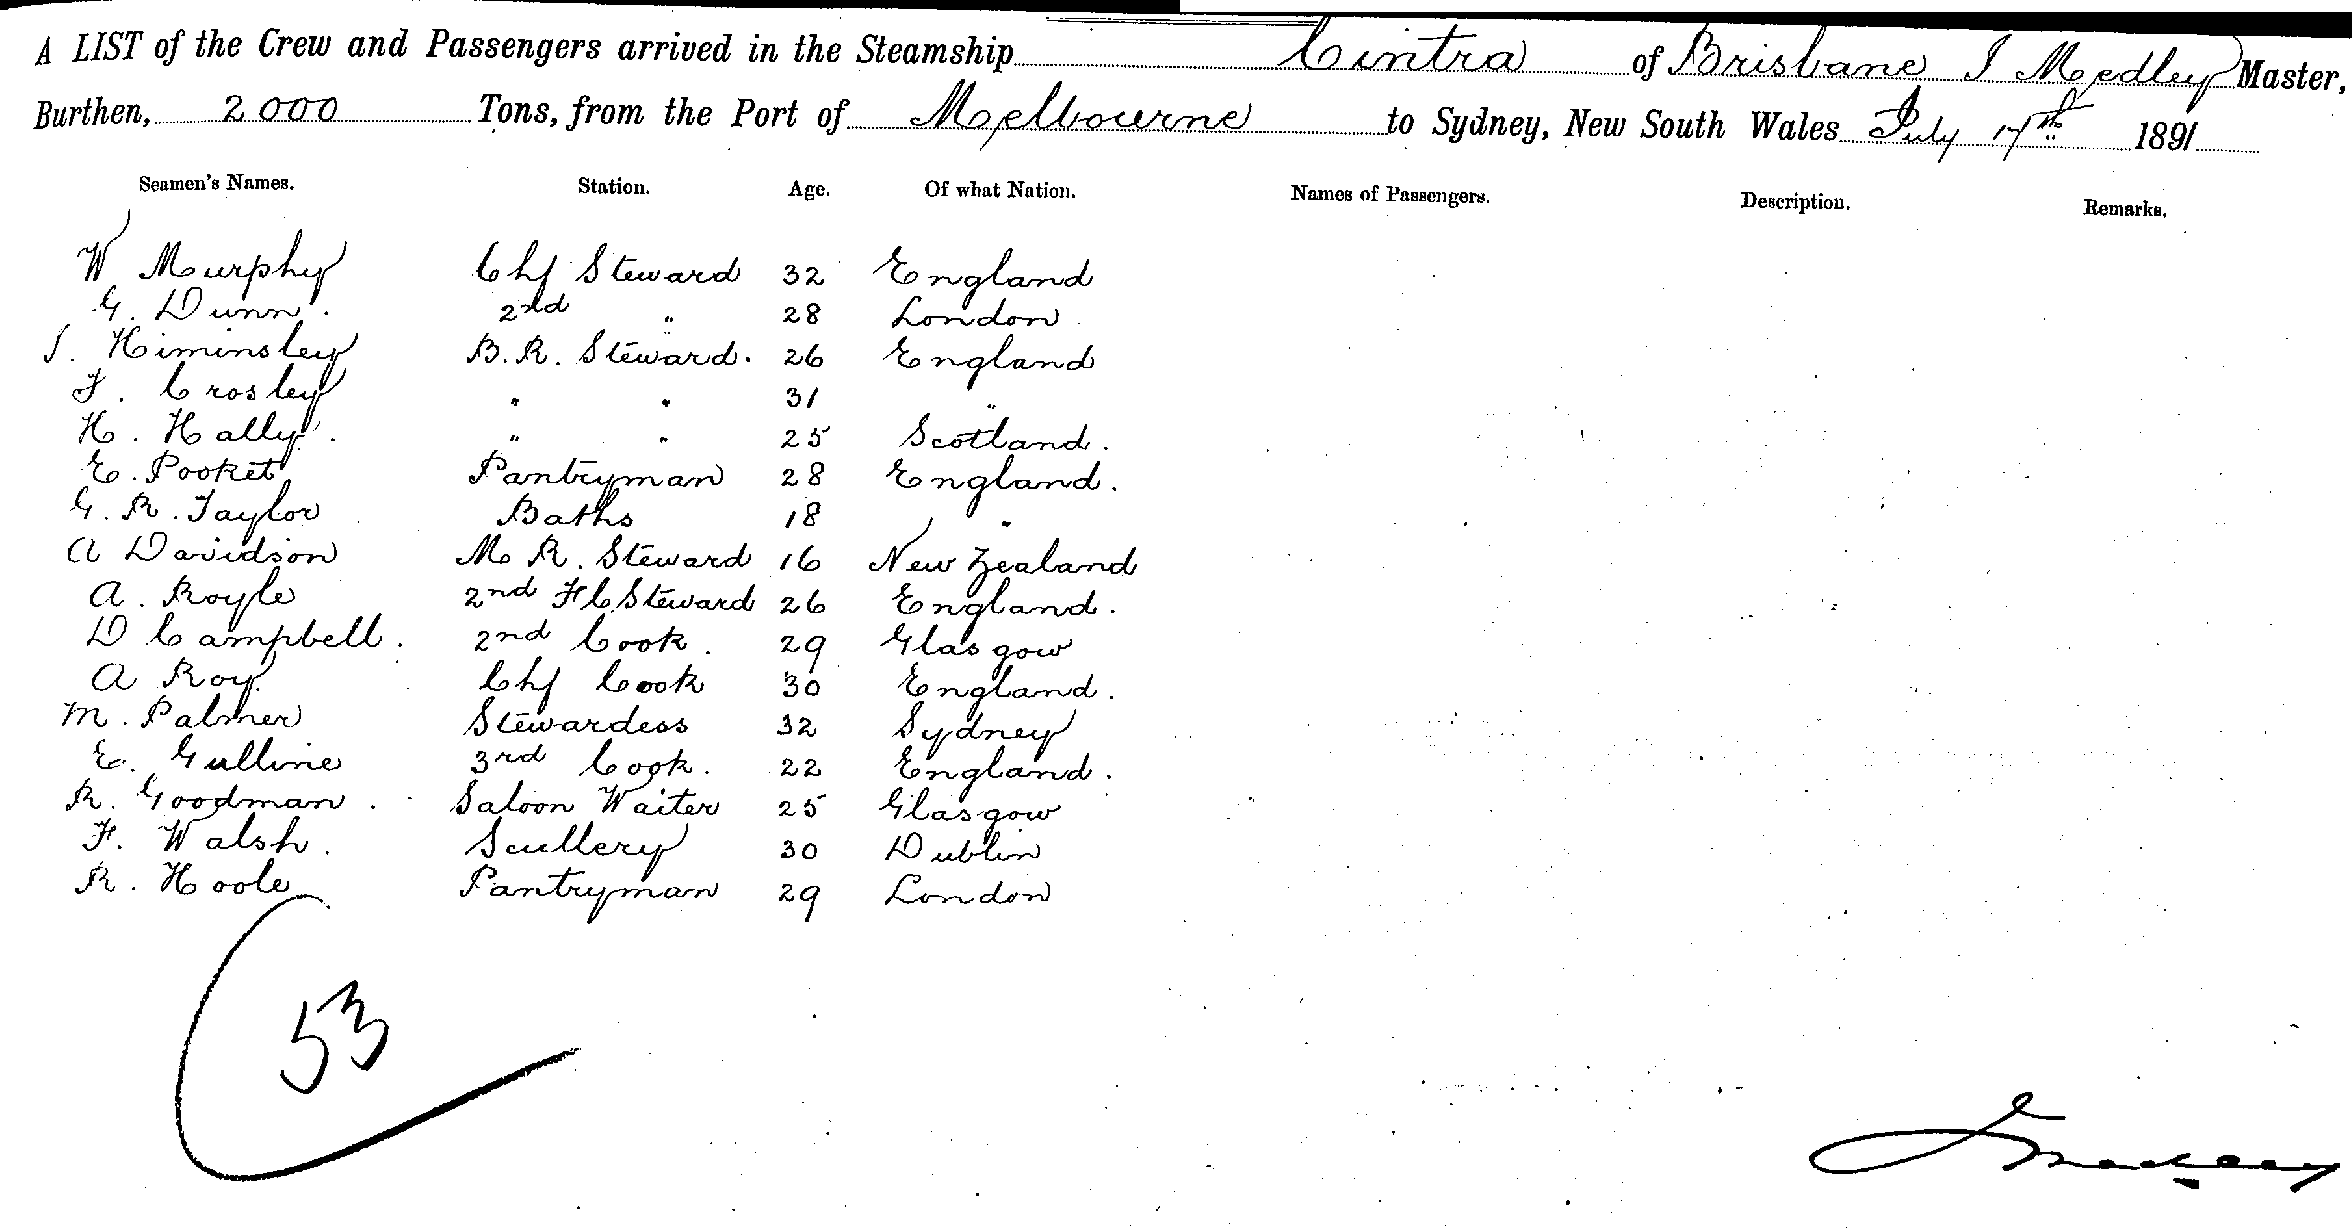 A LIST of the Crew and Passengers arrived in the Steamship Cintra of Brisbane J Medley Master,
Burthen, 2000 Tons, from the Port of Melbourne to Sydney, New South Wales July 17th 1891
Seamen's Names. Station. Age. Of what Nation. Names of Passengers. Description. Remarks.
W Murphy Chf Steward 32 England
G. Dunn. 2nd " 28 London
J. Kiminsley B.R. Steward. 26 England
F. Crosley " " 31 "
H. Hally. " " 25 Scotland.
E. Pooket Pantryman 28 England.
G. R. Taylor Baths 18 "
A Davidson M R. Steward 16 New Zealand
A. Royle 2nd F C Steward 26 England.
D Campbell. 2nd Cook. 29 Glasgow
A Roy. Chf Cook 30 England.
M. Palmer Stewardess 32 Sydney
E. Gulline 3rd Cook. 22 England.
R. Goodman. Saloon Waiter 25 Glasgow
F. Walsh. Scullery 30 Dublin
R. Hoole Pantryman 29 London
53
J Medley